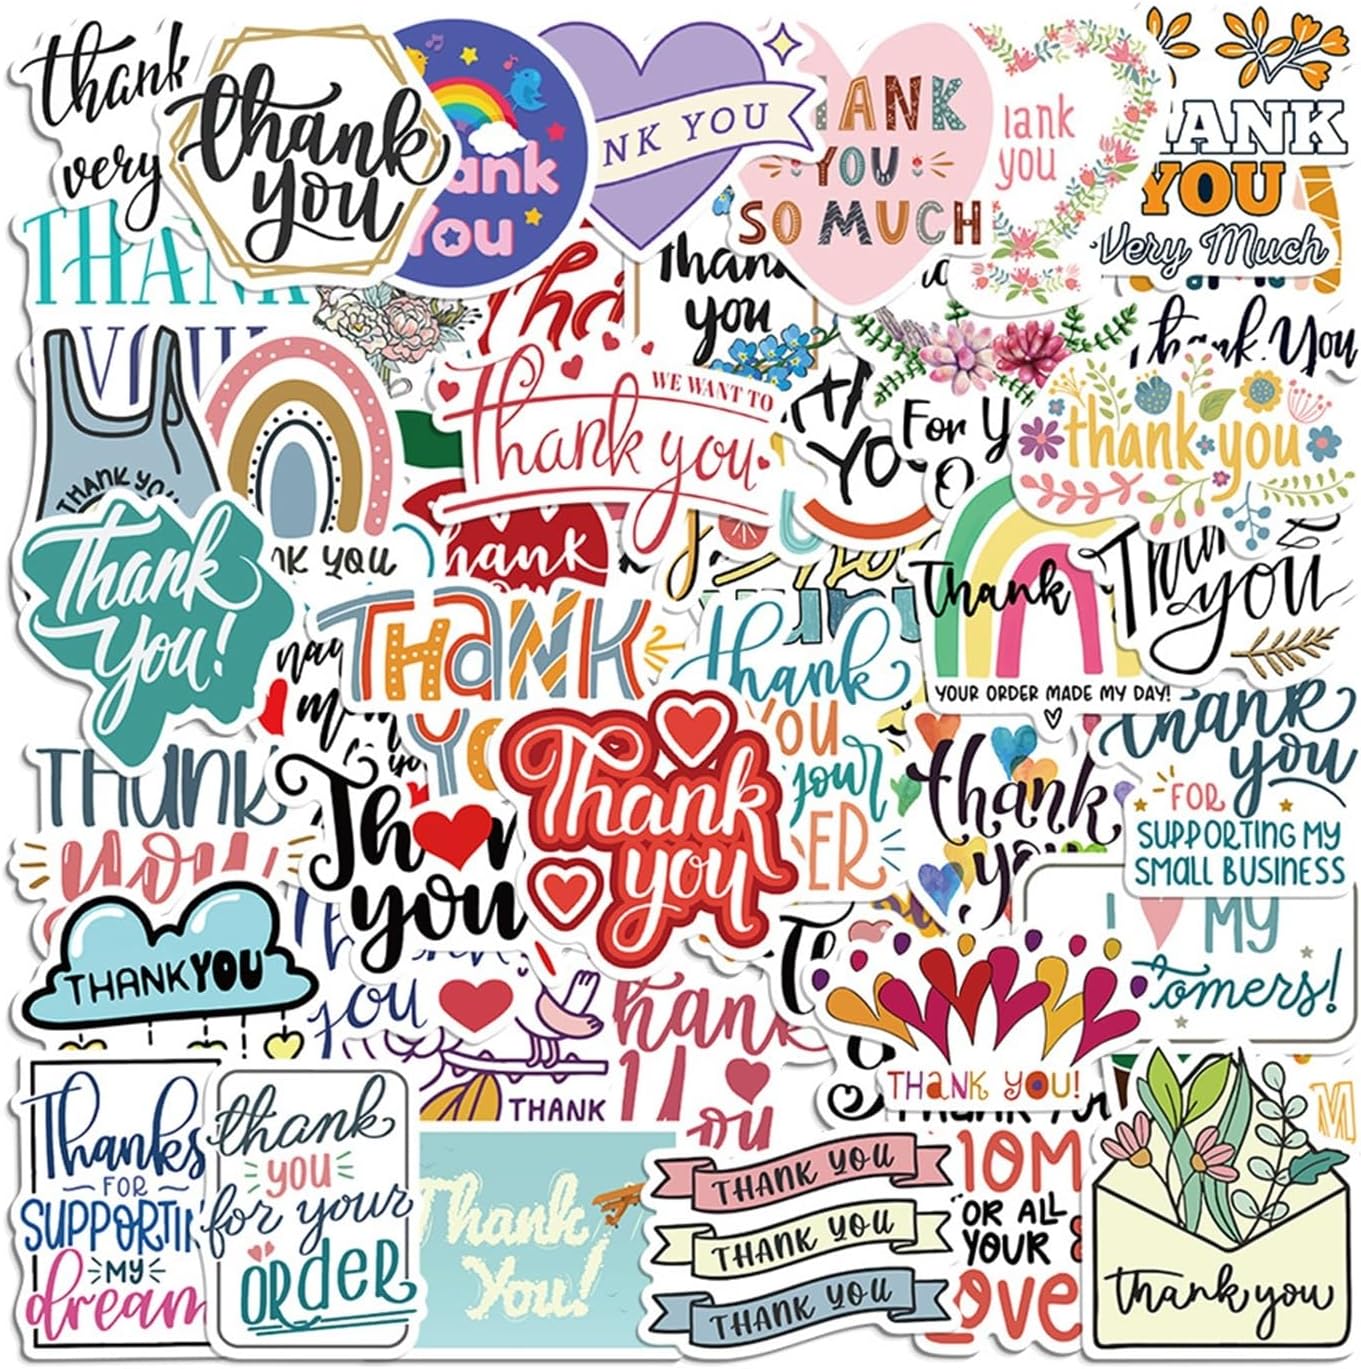 thank
very
thank
you
ank
You
NK YOU
ANK
YOU
SO MUCH
ank
you
ANK
YOU
Very Much
THAN
YOU
Tha
thank
you
thank you
THANK YOU
NK YOU
WE WANT TO
Thank you
hank
YO
For Y
O
thank you
Thank
You!
THANK
YO
thank
YOU
your
ER
Thank
YOUR ORDER MADE MY DAY!
Thank
you
THANK
you
Tha
you
Thank
you
thank
you
thank
you
FOR
SUPPORTING MY
SMALL BUSINESS
MY
tomers!
THANK YOU
you
THANK
hank
you
THANK YOU!
Thanks
FOR
SUPPORTIN
MY
dream
thank
you
for your
order
Thank
You!
THANK YOU
THANK YOU
THANK YOU
MOM
OR ALL
YOUR
ove
M
thank you